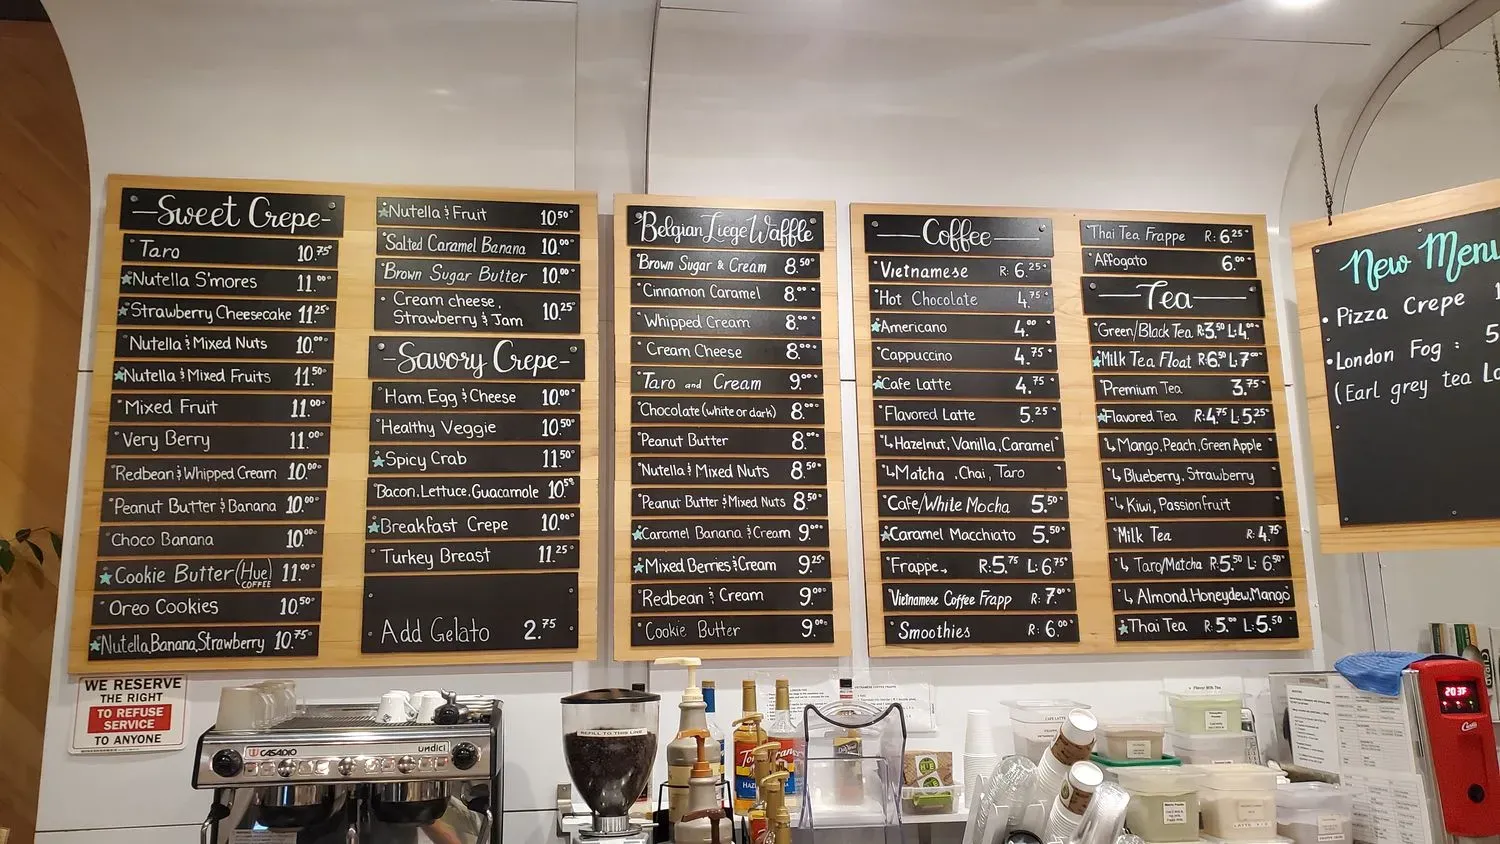 Sweet Crepe
Taro 10.75
Nutella S'mores 11.00
Strawberry Cheesecake 11.25
Nutella & Mixed Nuts 10.00
Nutella & Mixed Fruits 11.50
Mixed Fruit 11.00
Very Berry 11.00
Redbean & Whipped Cream 10.00
Peanut Butter & Banana 10.00
Choco Banana 10.00
Cookie Butter (Hue) COFFEE 11.00
Oreo Cookies 10.50
Nutella, Banana, Strawberry 10.75
Nutella & Fruit 10.50
Salted Caramel Banana 10.00
Brown Sugar Butter 10.00
Cream cheese,
Strawberry & Jam 10.25
Savory Crepe
Ham, Egg & Cheese 10.00
Healthy Veggie 10.50
Spicy Crab 11.50
Bacon, Lettuce, Guacamole 10.50
Breakfast Crepe 10.00
Turkey Breast 11.25
Add Gelato 2.75
Belgian Liege Waffle
Brown Sugar & Cream 8.50
Cinnamon Caramel 8.00
Whipped Cream 8.00
Cream Cheese 8.00
Taro and Cream 9.00
Chocolate (white or dark) 8.00
Peanut Butter 8.00
Nutella & Mixed Nuts 8.50
Peanut Butter & Mixed Nuts 8.50
Caramel Banana & Cream 9.00
Mixed Berries & Cream 9.25
Redbean & Cream 9.00
Cookie Butter 9.00
Coffee
Vietnamese R: 6.25
Hot Chocolate 4.75
Americano 4.00
Cappuccino 4.75
Cafe Latte 4.75
Flavored Latte 5.25
↳ Hazelnut, Vanilla, Caramel
↳ Matcha, Chai, Taro
Cafe/White Mocha 5.50
Caramel Macchiato 5.50
Frappe→ R:5.75 L:6.75
Vietnamese Coffee Frapp R: 7.00
Smoothies R: 6.00
Thai Tea Frappe R: 6.25
Affogato 6.00
Tea
Green/Black Tea R:3.50 L:4.00
Milk Tea Float R:6.50 L:7.00
Premium Tea 3.75
Flavored Tea R:4.75 L:5.25
↳ Mango, Peach, Green Apple
↳ Blueberry, Strawberry
↳ Kiwi, Passionfruit
Milk Tea R: 4.75
↳ Taro/Matcha R:5.50 L:6.50
↳ Almond, Honeydew, Mango
Thai Tea R:5.00 L:5.50
New Menu
Pizza Crepe
London Fog : 5
(Earl grey tea
WE RESERVE
THE RIGHT
TO REFUSE
SERVICE
TO ANYONE
CASADIO
undici
REFILL TO THIS LINE
203F